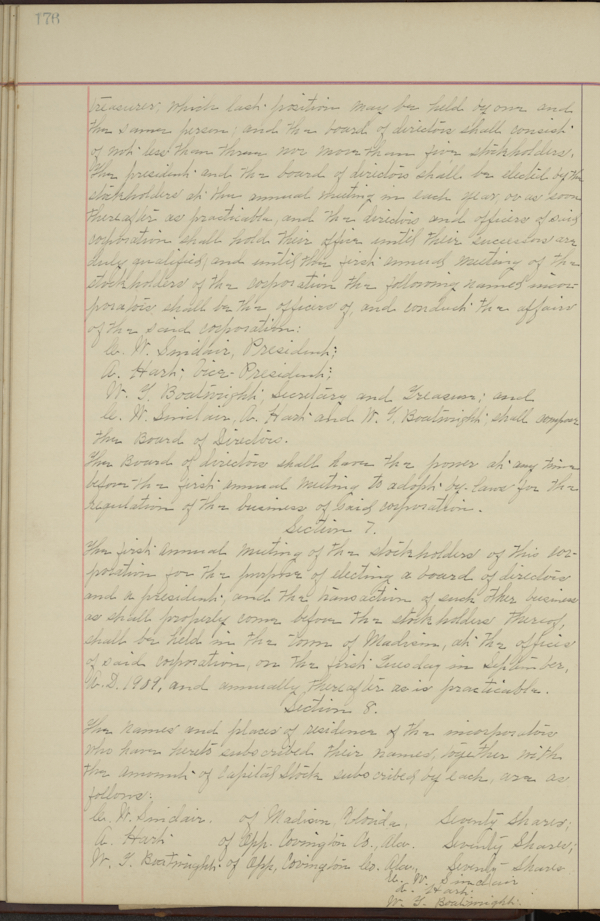 178
Treasurer; which last position may be held by one and
the same person; and the board of directors shall consist
of not less than three nor more than five stockholders.
The president and the board of directors shall be elected by the
stockholders at the annual meeting in each year, or as soon
thereafter as practicable, and the directors and officers of said
corporation shall hold their office until their successors are
duly qualified; and until the first annual meeting of the
stockholders of the corporation the following named incor-
porators shall be the officers of, and conduct the affairs
of the said corporation:
C. W. Sinclair, President;
A. Hart; Vice-President;
W. T. Boatwright; Secretary and Treasurer; and
C. W. Sinclair, A. Hart and W. T. Boatwright; shall compose
the Board of Directors.
The Board of directors shall have the power at any time
before the first annual meeting to adopt by-laws for the
regulation of the business of said corporation.
Section 7.
The first annual meeting of the stockholders of this cor-
poration for the purpose of electing a board of directors
and a president; and the transaction of such other business
as shall properly come before the stockholders thereof,
shall be held in the town of Madison, at the offices
of said corporation, on the first Tuesday in September,
A.D. 1909, and annually thereafter as is practicable.
Section 8.
The names and places of residence of the incorporators
who have hereto subscribed their names, together with
the amount of capital stock subscribed by each, are as
follows:
C. W. Sinclair. of Madison, Florida, Seventy Shares;
A. Hart of Opp. Covington Co., Ala. Seventy Shares;
W. T. Boatwright of Opp, Covington Co. Ala., Seventy Shares
C. W. Sinclair
A. Hart.
W. T. Boatwright.